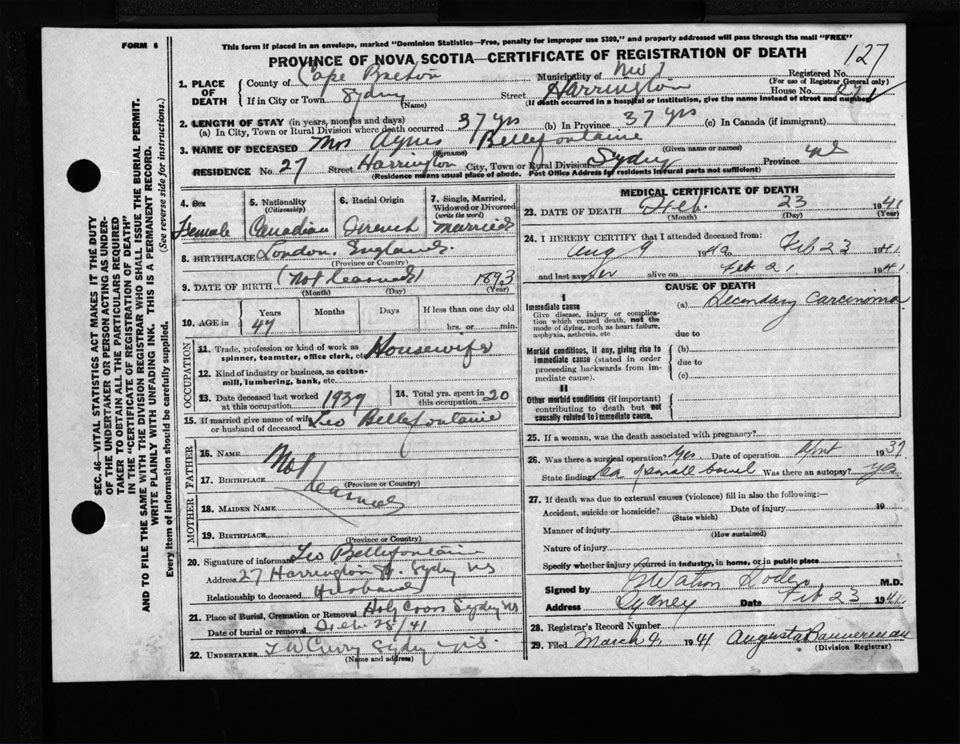 This form if placed in an envelope, marked "Dominion Statistics—Free, penalty for improper use $300," and properly addressed will pass through the mail "FREE"
FORM 6
PROVINCE OF NOVA SCOTIA—CERTIFICATE OF REGISTRATION OF DEATH
127
1. PLACE OF DEATH
County of Cape Breton Municipality of Registered No.
(For use of Registrar General only)
If in City or Town Sydney (Name) Street Harrington House No. 27
(If death occurred in a hospital or institution, give the name instead of street and number)
2. LENGTH OF STAY (in years, months and days)
(a) In City, Town or Rural Division where death occurred 37 yrs (b) In Province 37 yrs (c) In Canada (if immigrant)
3. NAME OF DECEASED Mrs Agnes Bellefontaine
(Surname) (Given name or names)
RESIDENCE No. 27 Street Harrington City, Town or Rural Division Sydney Province NS
(Residence means usual place of abode. Post Office Address for residents in rural parts not sufficient)
4. Sex Female
5. Nationality (Citizenship) Canadian
6. Racial Origin French
7. Single, Married, Widowed or Divorced (write the word) Married
8. BIRTHPLACE London England
(Province or Country)
9. DATE OF BIRTH (Not learned) 1893
(Month) (Day) (Year)
10. AGE in Years Months Days If less than one day old
47 hrs. or min.
OCCUPATION
11. Trade, profession or kind of work as spinner, teamster, office clerk, etc. Housewife
12. Kind of industry or business, as cotton-mill, lumbering, bank, etc.
13. Date deceased last worked at this occupation 1939
14. Total yrs. spent in this occupation 20
15. If married give name of wife or husband of deceased Leo Bellefontaine
FATHER
16. NAME Not learned
17. BIRTHPLACE
(Province or Country)
MOTHER
18. MAIDEN NAME
19. BIRTHPLACE
(Province or Country)
20. Signature of informant Leo Bellefontaine
Address 27 Harrington St. Sydney NS
Relationship to deceased Husband
21. Place of Burial, Cremation or Removal Holy Cross Sydney NS
Date of burial or removal Feb 25/41
22. UNDERTAKER Sydney N.S.
(Name and address)
MEDICAL CERTIFICATE OF DEATH
23. DATE OF DEATH Feb. 23 1941
(Month) (Day) (Year)
24. I HEREBY CERTIFY that I attended deceased from:
Aug 9 1940 Feb 23 1941
and last saw her alive on Feb 21 1941
CAUSE OF DEATH
I
Immediate cause
Give disease, injury or complication which caused death, not the mode of dying, such as heart failure, asphyxia, asthenia, etc
(a) Secondary Carcinoma
due to
Morbid conditions, if any, giving rise to immediate cause (stated in order proceeding backwards from immediate cause).
(b)
due to
(c)
II
Other morbid conditions (if important) contributing to death but not causally related to immediate cause.
25. If a woman, was the death associated with pregnancy?
26. Was there surgical operation? Yes Date of operation April 1939
State findings Ca of small bowel Was there an autopsy? Yes
27. If death was due to external causes (violence) fill in also the following:—
Accident, suicide or homicide? Date of injury 19
(State which)
Manner of injury
(How sustained)
Nature of injury
Specify whether injury occurred in industry, in home, or in public place
Signed by M.D.
Address Sydney Date Feb 23 1941
28. Registrar's Record Number
29. Filed March 4, 1941 Augusta Bannerman
(Division Registrar)
SEC. 46—VITAL STATISTICS ACT MAKES IT THE DUTY
OF THE UNDERTAKER OR PERSON ACTING AS UNDER-
TAKER TO OBTAIN ALL THE PARTICULARS REQUIRED
IN THE "CERTIFICATE OF REGISTRATION OF DEATH"
AND TO FILE THE SAME WITH THE DIVISION REGISTRAR WHO SHALL ISSUE THE BURIAL PERMIT.
WRITE PLAINLY WITH UNFADING INK. THIS IS A PERMANENT RECORD.
Every item of information should be carefully supplied. (See reverse side for instructions.)